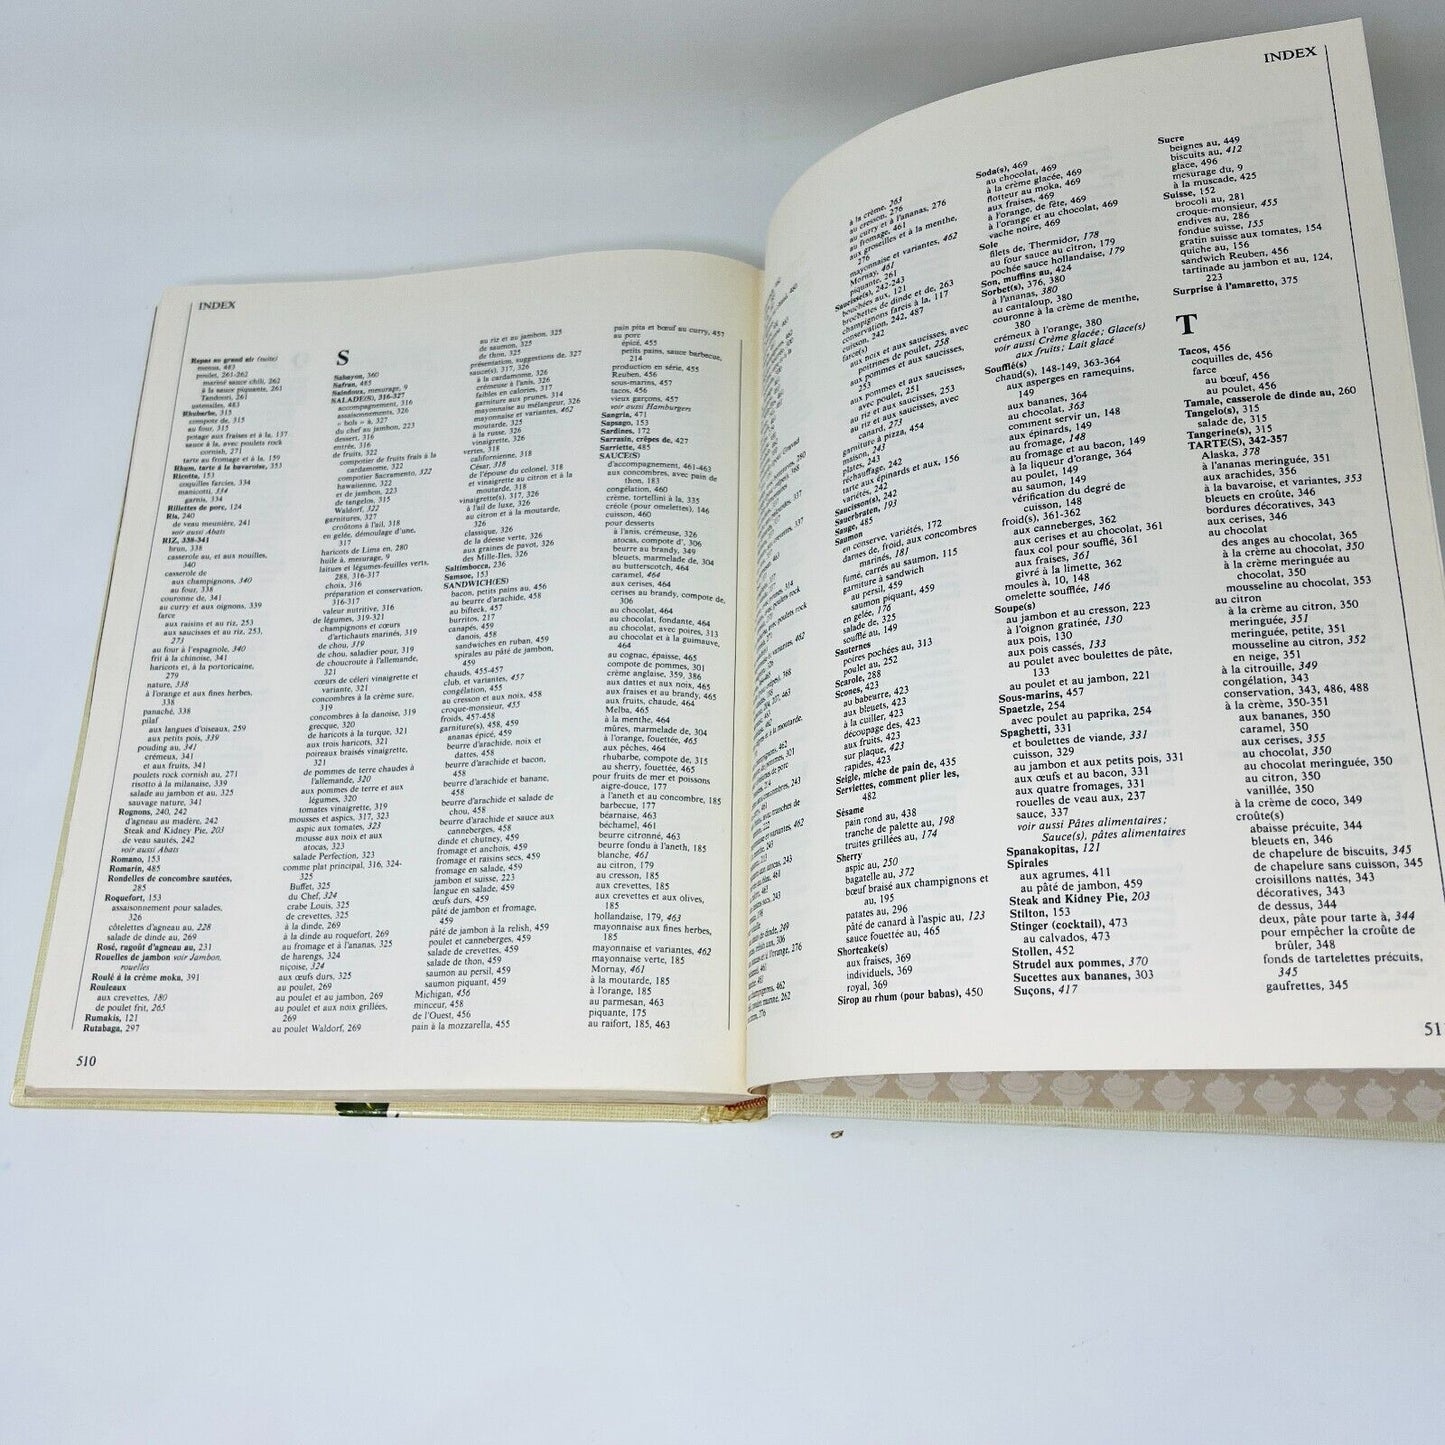 INDEX
Repas au grand air (suite)
menus, 483
poulet, 261-262
mariné sauce chili, 262
à la sauce piquante, 261
Tandoori, 261
ustensiles, 483
Rhubarbe, 315
compote de, 315
au four, 315
potage aux fraises et à la, 137
sauce à la, avec poulets rock
cornish, 271
tarte au fromage et à la, 159
Rhum, tarte à la bavaroise, 353
Ricotta, 153
coquilles farcies, 334
manicotti, 334
garnis, 334
Rillettes de porc, 124
Ris, 240
de veau meunière, 241
voir aussi Abats
RIZ, 338-341
brun, 338
casserole au, et aux nouilles,
340
casserole de
aux champignons, 340
au four, 338
couronne de, 341
au curry et aux oignons, 339
farce
aux raisins et au riz, 253
aux saucisses et au riz, 253,
273
au four à l'espagnole, 340
frit à la chinoise, 341
haricots et, à la portoricaine,
279
nature, 338
à l'orange et aux fines herbes,
338
panaché, 338
pilaf
aux langues d'oiseaux, 259
aux petits pois, 339
pouding au, 341
crémeux, 341
et aux fruits, 341
poulets rock cornish au, 271
risotto à la milanaise, 339
salade au jambon et au, 325
sauvage nature, 341
Rognons, 240, 242
d'agneau au madère, 242
Steak and Kidney Pie, 203
de veau sautés, 242
voir aussi Abats
Romano, 153
Romarin, 485
Rondelles de concombre sautées,
285
Roquefort, 153
assaisonnement pour salades,
326
côtelettes d'agneau au, 228
salade de dinde au, 269
Rosé, ragoût d'agneau au, 231
Rouelles de jambon voir Jambon,
rouelles
Roulé à la crème moka, 391
Rouleaux
aux crevettes, 180
de poulet frit, 265
Rumakis, 121
Rutabaga, 297
S
Sabayon, 360
Safran, 485
Saindoux, mesurage, 9
SALADE(S), 316-327
accompagnement, 316
assaisonnements, 326
« bols » à, 327
du chef au jambon, 223
dessert, 316
entrée, 316
de fruits, 322
compotier de fruits frais à la
cardamome, 322
compotier Sacramento, 322
hawaïenne, 322
et de jambon, 223
de tangelos, 315
Waldorf, 322
garnitures, 327
croûtons à l'ail, 318
en gelée, démoulage d'une,
317
haricots de Lima en, 280
huile à, mesurage, 9
laitues et légumes-feuilles verts,
288, 316-317
choix, 316
préparation et conservation,
316-317
valeur nutritive, 316
de légumes, 319-321
champignons et cœurs
d'artichauts marinés, 319
de chou, 319
de chou, saladier pour, 319
de choucroute à l'allemande,
321
cœurs de céleri vinaigrette et
variante, 321
concombres à la crème sure,
319
concombres à la danoise, 319
grecque, 320
de haricots à la turque, 321
aux trois haricots, 321
poireaux braisés vinaigrette,
321
de pommes de terre chaudes à
l'allemande, 320
aux pommes de terre et aux
légumes, 320
tomates vinaigrette, 319
mousses et aspics, 317, 323
aspic aux tomates, 323
mousse aux noix et aux
atocas, 323
salade Perfection, 323
comme plat principal, 316, 324-
325
Buffet, 325
du Chef, 324
crabe Louis, 325
de crevettes, 325
à la dinde, 269
à la dinde au roquefort, 269
au fromage et à l'ananas, 325
de harengs, 325
niçoise, 324
aux œufs durs, 325
au poulet, 269
au poulet et au jambon, 269
au poulet et aux noix grillées,
269
au poulet Waldorf, 269
au riz et au jambon, 325
de saumon, 325
de thon, 325
présentation, suggestions de, 327
sauce(s), 317, 326
à la cardamome, 326
crémeuse à l'anis, 326
faibles en calories, 317
garniture aux prunes, 314
mayonnaise au mélangeur, 326
mayonnaise et variantes, 462
moutarde, 325
à la russe, 326
vinaigrette, 326
vertes, 318
californienne, 318
César, 318
de l'épouse du colonel, 318
et vinaigrette au citron et à la
moutarde, 318
vinaigrette(s), 317, 326
à l'ail de luxe, 326
au citron et à la moutarde,
326
classique, 326
de la déesse verte, 326
aux graines de pavot, 326
des Mille-Iles, 326
Saltimbocca, 236
Samsoe, 153
SANDWICH(ES)
bacon, petits pains au, 456
au beurre d'arachide, 458
au bifteck, 457
burritos, 217
canapés, 459
danois, 458
sandwiches en ruban, 459
spirales au pâté de jambon,
459
chauds, 455-457
club, et variantes, 457
congélation, 455
au cresson et aux noix, 458
croque-monsieur, 455
froids, 457-458
garniture(s), 458, 459
ananas épicé, 459
beurre d'arachide, noix et
dattes, 458
beurre d'arachide et bacon,
458
beurre d'arachide et banane,
458
beurre d'arachide et salade de
chou, 458
beurre d'arachide et sauce aux
canneberges, 458
dinde et chutney, 459
fromage et anchois, 459
fromage et raisins secs, 459
fromage en salade, 459
jambon et suisse, 223
langue en salade, 459
œufs durs, 459
pâté de jambon et fromage,
459
pâté de jambon à la relish, 459
poulet et canneberges, 459
salade de crevettes, 459
salade de thon, 459
saumon au persil, 459
saumon piquant, 459
Michigan, 456
minceur, 458
de l'Ouest, 456
pain à la mozzarella, 455
pain pita et bœuf au curry, 457
au porc
épicé, 455
petits pains, sauce barbecue,
214
production en série, 455
Reuben, 456
sous-marins, 457
tacos, 456
vieux garçons, 457
voir aussi Hamburgers
Sangria, 471
Sapsago, 153
Sardines, 172
Sarrasin, crêpes de, 427
Sarriette, 485
SAUCE(S)
d'accompagnement, 461-463
aux concombres, avec pain de
thon, 183
congélation, 460
crème, tortellini à la, 335
créole (pour omelettes), 146
cuisson, 460
pour desserts
à l'anis, crémeuse, 326
atocas, compote d', 306
beurre au brandy, 349
bleuets, marmelade de, 304
au butterscotch, 464
caramel, 464
aux cerises, 464
cerises au brandy, compote de,
306
au chocolat, 464
au chocolat, fondante, 464
au chocolat, avec poires, 313
au chocolat et à la guimauve,
464
au cognac, épaisse, 465
compote de pommes, 301
crème anglaise, 359, 386
aux dattes et aux noix, 465
aux fraises et au brandy, 465
aux fruits, chaude, 464
Melba, 465
à la menthe, 464
mûres, marmelade de, 304
à l'orange, fouettée, 465
aux pêches, 464
rhubarbe, compote de, 315
au sherry, fouettée, 465
pour fruits de mer et poissons
aigre-douce, 177
à l'aneth et au concombre, 185
barbecue, 177
béarnaise, 463
béchamel, 461
beurre citronné, 463
beurre fondu à l'aneth, 185
blanche, 461
au citron, 179
au cresson, 185
aux crevettes, 185
aux crevettes et aux olives,
185
hollandaise, 179, 463
mayonnaise aux fines herbes,
185
mayonnaise et variantes, 462
mayonnaise verte, 185
Mornay, 461
à la moutarde, 185
à l'orange, 185
au parmesan, 463
piquante, 175
au raifort, 185, 463
510
INDEX
à la crème, 263
au cresson, 276
au curry et à l'ananas, 276
au fromage, 461
aux groseilles et à la menthe,
276
mayonnaise et variantes, 462
Mornay, 461
piquante, 261
Saucisse(s), 242-243
bouchées aux, 121
brochettes de dinde et de, 263
champignons farcis à la, 117
conservation, 242, 487
cuisson, 242
farce(s)
aux noix et aux saucisses, avec
poitrines de poulet, 258
aux pommes et aux saucisses,
253
aux pommes et aux saucisses,
avec poulet, 251
au riz et aux saucisses, 253
au riz et aux saucisses, avec
canard, 273
garniture à pizza, 454
maison, 243
plates, 243
réchauffage, 242
tarte aux épinards et aux, 156
variétés, 242
Saucisson(s), 242
Sauerbraten, 193
Sauge, 485
Saumon
en conserve, variétés, 172
darnes de, froid, aux concombres
marinés, 181
fumé, carrés au saumon, 115
garniture à sandwich
au persil, 459
saumon piquant, 459
en gelée, 176
salade de, 325
soufflé au, 149
Sauternes
poires pochées au, 313
poulet au, 252
Scarole, 288
Scones, 423
au babeurre, 423
aux bleuets, 423
à la cuiller, 423
découpage des, 423
aux fruits, 423
sur plaque, 423
rapides, 423
Seigle, miche de pain de, 435
Serviettes, comment plier les,
482
Sésame
pain rond au, 438
tranche de palette au, 198
truites grillées au, 174
Sherry
aspic au, 250
bagatelle au, 372
bœuf braisé aux champignons et
au, 195
patates au, 296
pâté de canard à l'aspic au, 123
sauce fouettée au, 465
Shortcake(s)
aux fraises, 369
individuels, 369
royal, 369
Sirop au rhum (pour babas), 450
Soda(s), 469
au chocolat, 469
à la crème glacée, 469
flotteur au moka, 469
aux fraises, 469
à l'orange, de fête, 469
à l'orange et au chocolat, 469
vache noire, 469
Sole
filets de, Thermidor, 178
au four sauce au citron, 179
pochée sauce hollandaise, 179
Son, muffins au, 424
Sorbet(s), 376, 380
à l'ananas, 380
au cantaloup, 380
couronne à la crème de menthe,
380
crémeux à l'orange, 380
voir aussi Crème glacée; Glace(s)
aux fruits; Lait glacé
Soufflé(s)
chaud(s), 148-149, 363-364
aux asperges en ramequins,
149
aux bananes, 364
au chocolat, 363
comment servir un, 148
aux épinards, 149
au fromage, 148
au fromage et au bacon, 149
à la liqueur d'orange, 364
au poulet, 149
au saumon, 149
vérification du degré de
cuisson, 148
froid(s), 361-362
aux canneberges, 362
aux cerises et au chocolat, 361
faux col pour soufflé, 361
aux fraises, 361
givré à la limette, 362
moules à, 10, 148
omelette soufflée, 146
Soupe(s)
au jambon et au cresson, 223
à l'oignon gratinée, 130
aux pois, 130
aux pois cassés, 133
au poulet avec boulettes de pâte,
133
au poulet et au jambon, 221
Sous-marins, 457
Spaetzle, 254
avec poulet au paprika, 254
Spaghetti, 331
et boulettes de viande, 331
cuisson, 329
au jambon et aux petits pois, 331
aux œufs et au bacon, 331
aux quatre fromages, 331
rouelles de veau aux, 237
sauce, 337
voir aussi Pâtes alimentaires;
Sauce(s), pâtes alimentaires
Spanakopitas, 121
Spirales
aux agrumes, 411
au pâté de jambon, 459
Steak and Kidney Pie, 203
Stilton, 153
Stinger (cocktail), 473
au calvados, 473
Stollen, 452
Strudel aux pommes, 370
Sucettes aux bananes, 303
Suçons, 417
Sucre
beignes au, 449
biscuits au, 412
glace, 496
mesurage du, 9
à la muscade, 425
Suisse, 152
brocoli au, 281
croque-monsieur, 455
endives au, 286
fondue suisse, 155
gratin suisse aux tomates, 154
quiche au, 156
sandwich Reuben, 456
tartinade au jambon et au, 124,
223
Surprise à l'amaretto, 375
T
Tacos, 456
coquilles de, 456
farce
au bœuf, 456
au poulet, 456
Tamale, casserole de dinde au, 260
Tangelo(s), 315
salade de, 315
Tangerine(s), 315
TARTE(S), 342-357
Alaska, 378
à l'ananas meringuée, 351
aux arachides, 356
à la bavaroise, et variantes, 353
bleuets en croûte, 346
bordures décoratives, 343
aux cerises, 346
au chocolat
des anges au chocolat, 365
à la crème au chocolat, 350
à la crème meringuée au
chocolat, 350
mousseline au chocolat, 353
au citron
à la crème au citron, 350
meringuée, 351
meringuée, petite, 351
mousseline au citron, 352
en neige, 351
à la citrouille, 349
congélation, 343
conservation, 343, 486, 488
à la crème, 350-351
aux bananes, 350
caramel, 350
aux cerises, 355
au chocolat, 350
au chocolat meringuée, 350
au citron, 350
vanillée, 350
à la crème de coco, 349
croûte(s)
abaisse précuite, 344
bleuets en, 346
de chapelure de biscuits, 345
de chapelure sans cuisson, 345
croisillons nattés, 343
décoratives, 343
de dessus, 344
deux, pâte pour tarte à, 344
pour empêcher la croûte de
brûler, 348
fonds de tartelettes précuits,
345
gaufrettes, 345